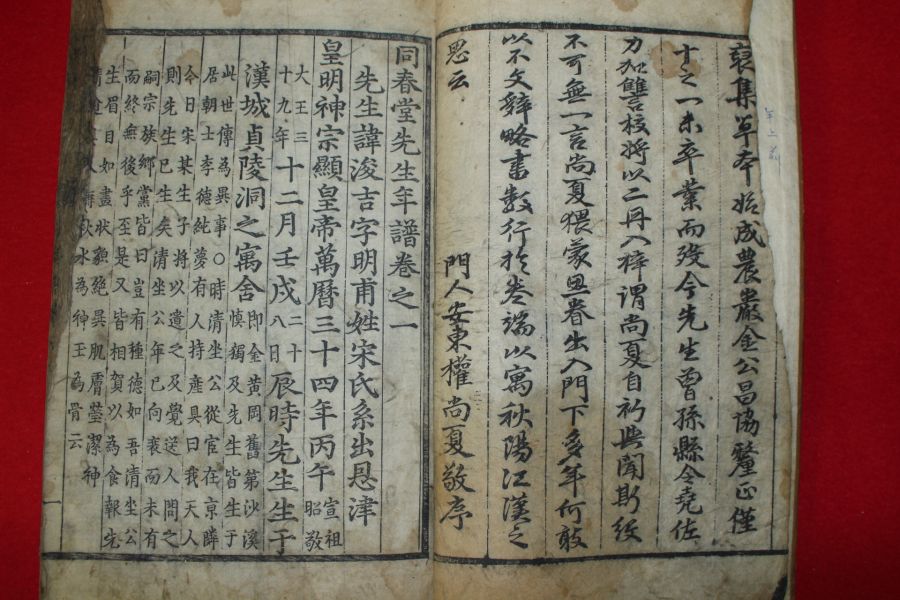 裒集草本始成農巖金公昌協釐正僅
十之一未卒業而歿今先生曾孫縣令堯佐
力加讐校將以二再入梓謂尚夏自初與聞斯役
不可無一言尚夏猥蒙恩眷出入門下多年何敢
以不文辭略書數行於卷端以寓秋陽江漢之
思云
門人安東權尚夏敬序
同春堂先生年譜卷之一
先生諱浚吉字明甫姓宋氏系出恩津
皇明神宗顯皇帝萬曆三十四年丙午宣祖昭敬
大王三十九年十二月壬戌二十八日辰時先生生于
漢城貞陵洞之寓舍即金黃岡舊第沙溪慎獨及先生皆生于
此世傳為異事○時清坐公從宦在京隣
居朝士李德純夢有人持產具曰我天人
今日宋某生子將以遺之及覺送人問之
則先生已生矣清坐公年已向衰而未有
嗣宗族鄉黨皆曰豈有種德如吾清坐公
而終無後乎至是又皆相賀以為食報先
生眉目如畫狀貌絕異肌膚瑩潔神
秋水為神玉為骨云
一